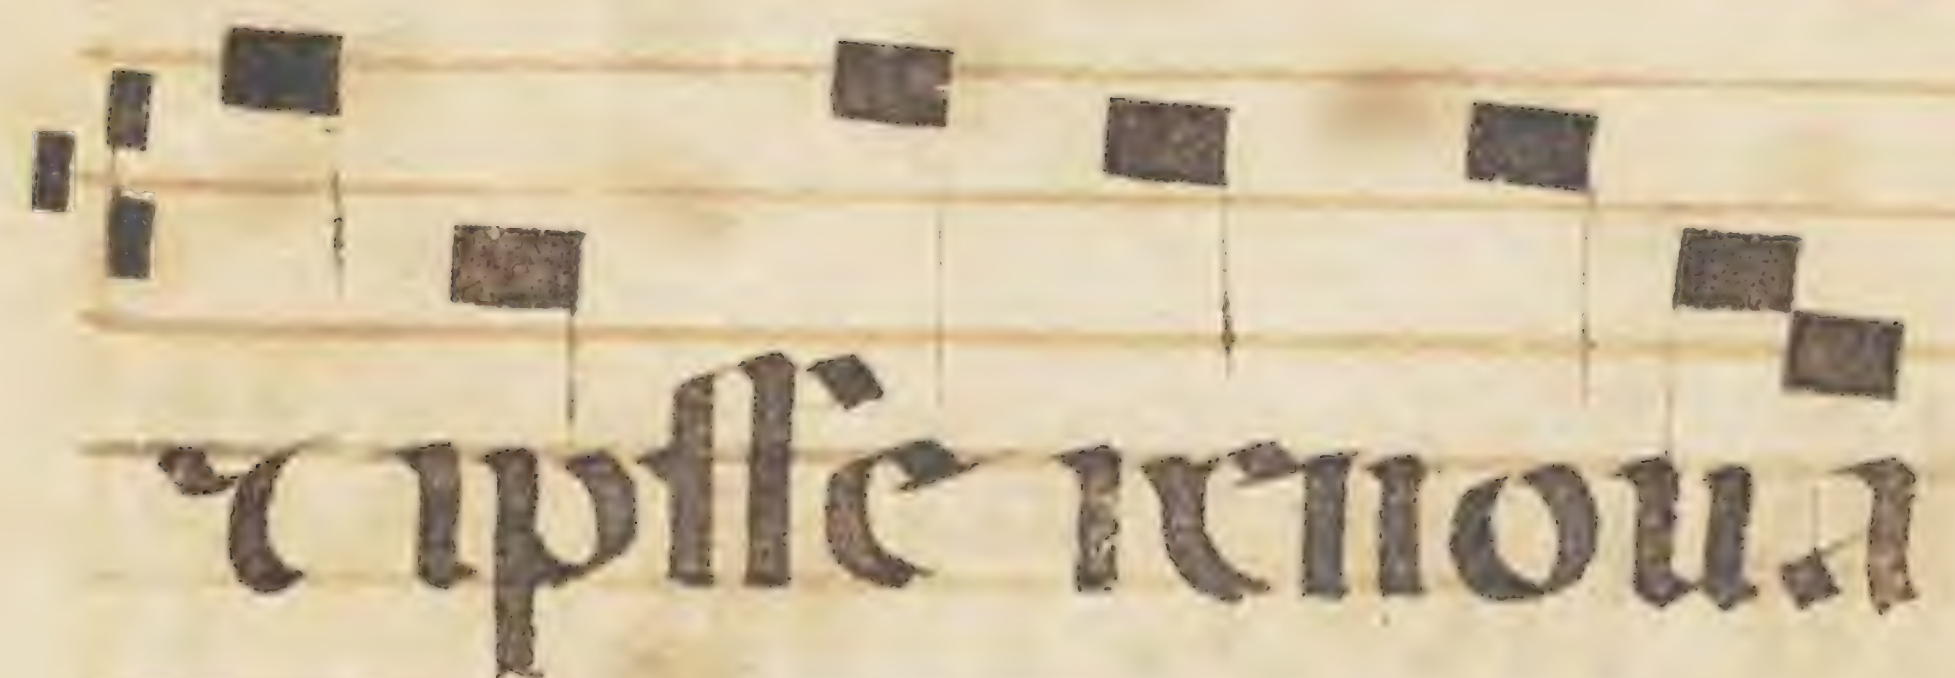 et ipsse renoua